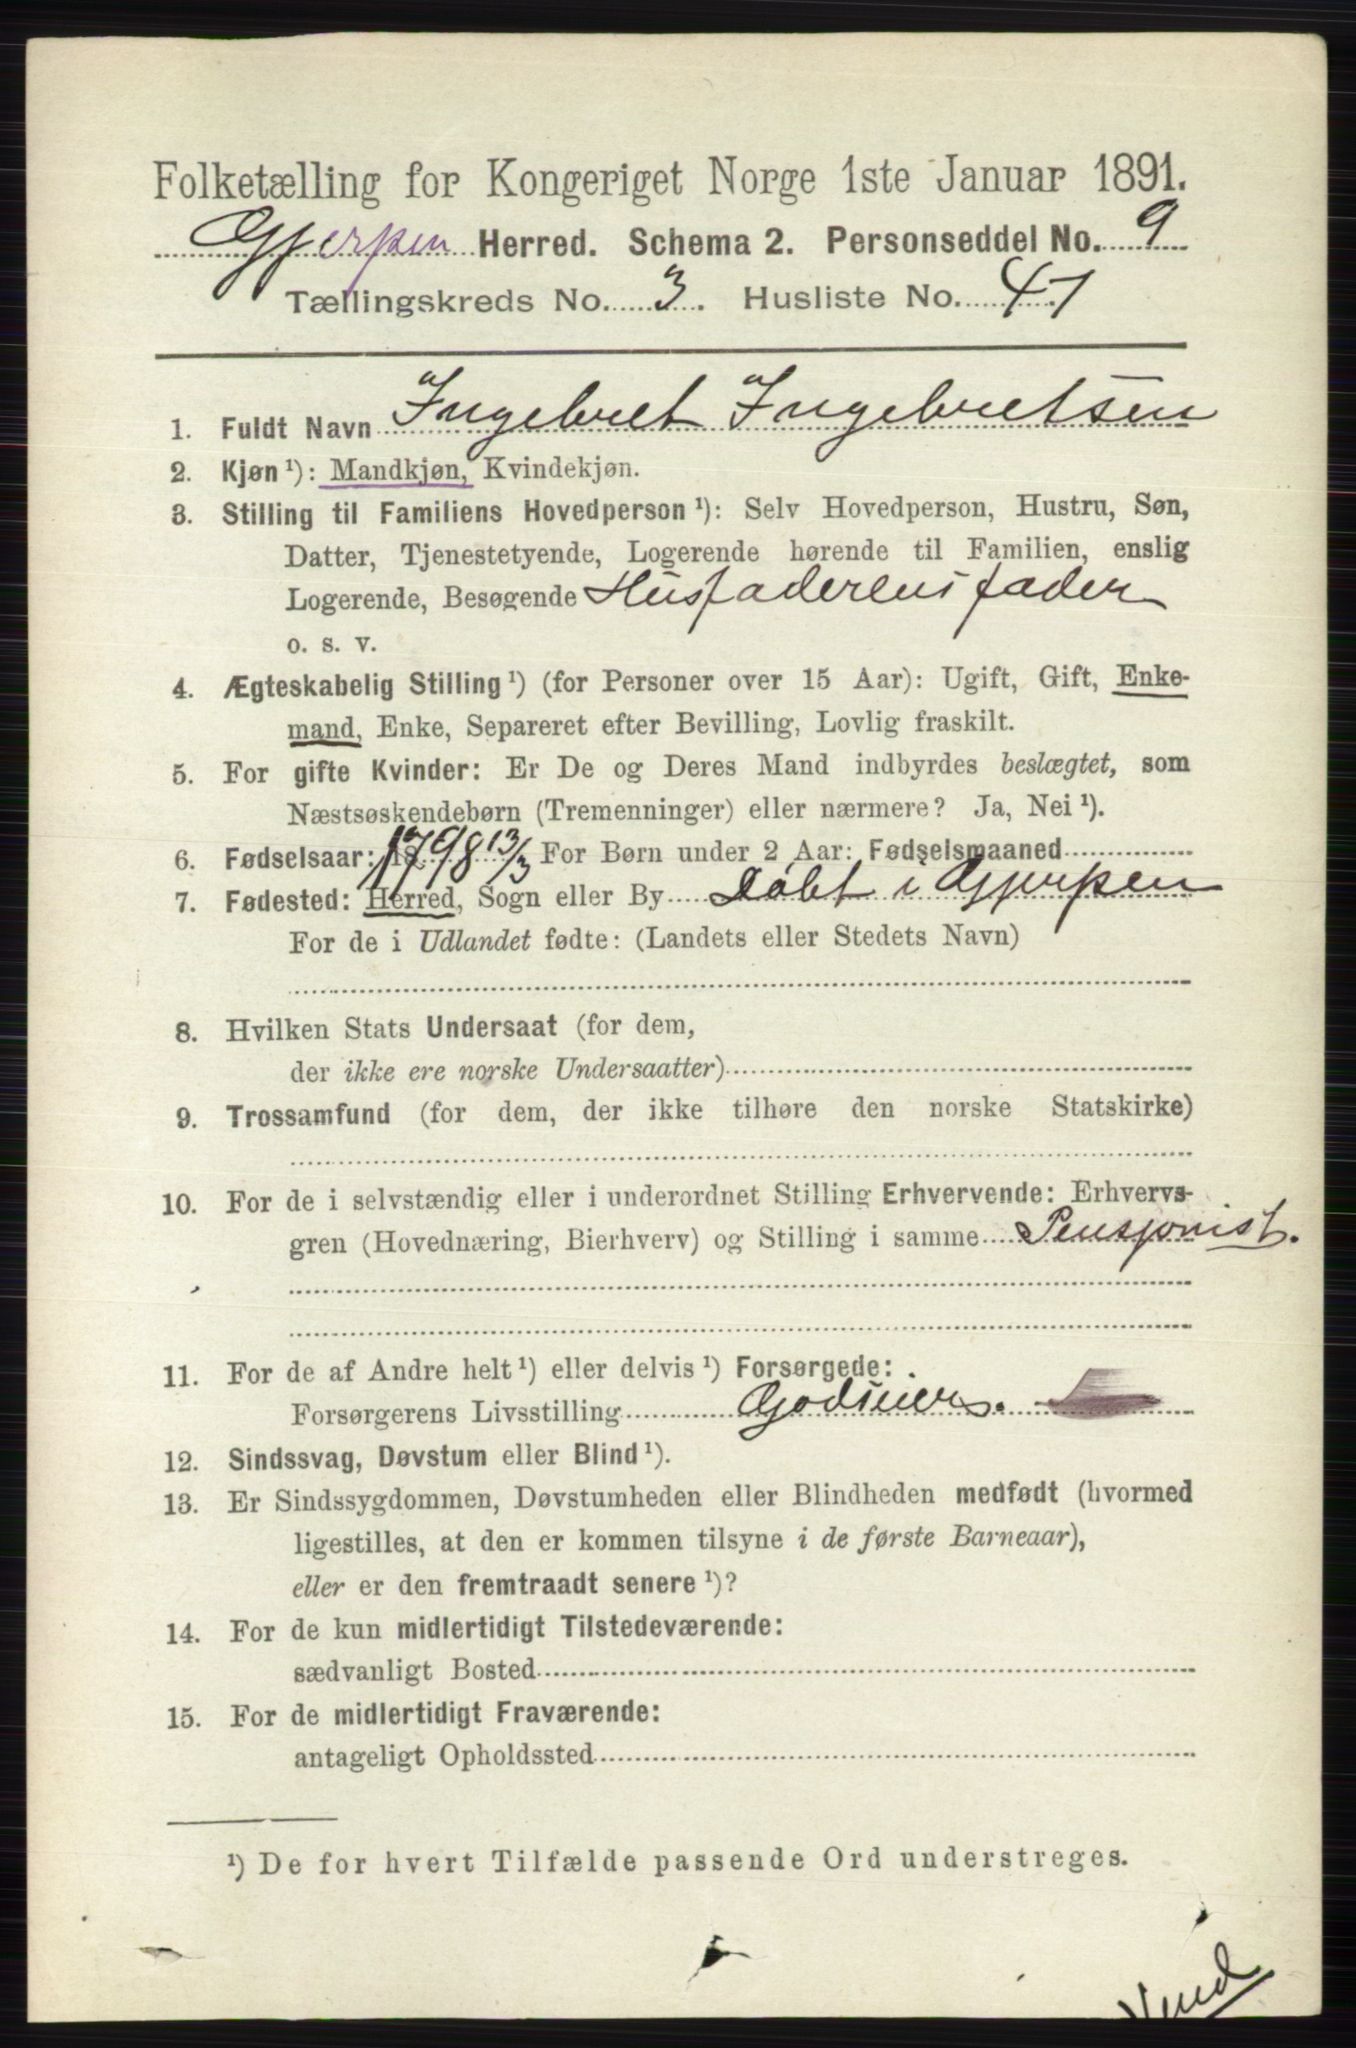 Folketælling for Kongeriget Norge 1ste Januar 1891.
Gjerpen Herred. Schema 2. Personseddel No. 9
Tællingskreds No. 3. Husliste No. 47
1. Fuldt Navn Ingebret Ingebretsen
2. Kjøn ¹): Mandkjøn, Kvindekjøn.
3. Stilling til Familiens Hovedperson ¹): Selv Hovedperson, Hustru, Søn,
Datter, Tjenestetyende, Logerende hørende til Familien, enslig
Logerende, Besøgende Husfaderens fader
o. s. v.
4. Ægteskabelig Stilling ¹) (for Personer over 15 Aar): Ugift, Gift, Enke-
mand, Enke, Separeret efter Bevilling, Lovlig fraskilt.
5. For gifte Kvinder: Er De og Deres Mand indbyrdes beslægtet, som
Næstsøskendebørn (Tremenninger) eller nærmere? Ja, Nei ¹).
6. Fødselsaar: 1798 13/3 For Børn under 2 Aar: Fødselsmaaned
7. Fødested: Herred, Sogn eller By Døbt i Gjerpen
For de i Udlandet fødte: (Landets eller Stedets Navn)
8. Hvilken Stats Undersaat (for dem,
der ikke ere norske Undersaatter)
9. Trossamfund (for dem, der ikke tilhøre den norske Statskirke)
10. For de i selvstændig eller i underordnet Stilling Erhvervende: Erhvervs-
gren (Hovednæring, Bierhverv) og Stilling i samme Pensjonist.
11. For de af Andre helt ¹) eller delvis ¹) Forsørgede:
Forsørgerens Livsstilling Godseier.
12. Sindssvag, Døvstum eller Blind ¹).
13. Er Sindssygdommen, Døvstumheden eller Blindheden medfødt (hvormed
ligestilles, at den er kommen tilsyne i de første Barneaar),
eller er den fremtraadt senere ¹)?
14. For de kun midlertidigt Tilstedeværende:
sædvanligt Bosted
15. For de midlertidigt Fraværende:
antageligt Opholdssted
¹) De for hvert Tilfælde passende Ord understreges.
Vend